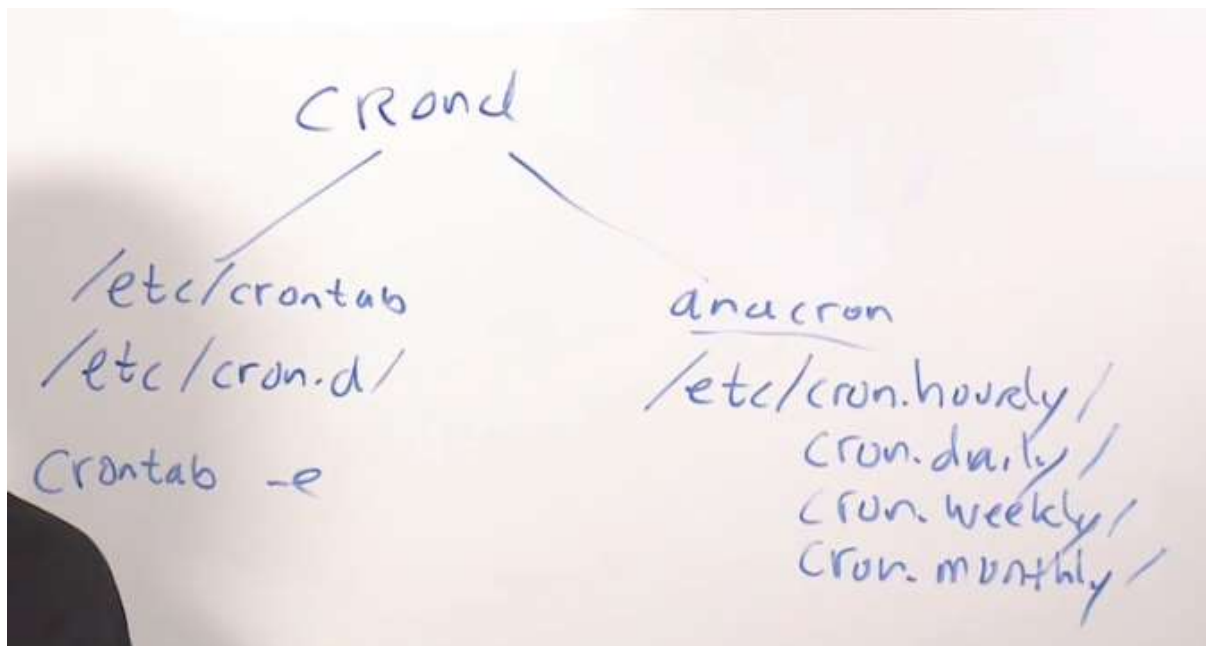 CRond
/etc/crontab
/etc/cron.d/
Crontab -e
anacron
/etc/cron.hourly/
cron.daily/
cron.weekly/
cron.monthly/